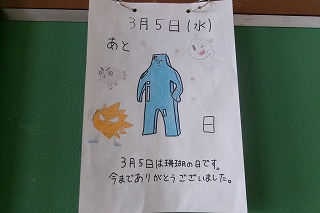 3月5日(水)
あと
日
3月5日は珊瑚の日です。
今までありがとうございました。